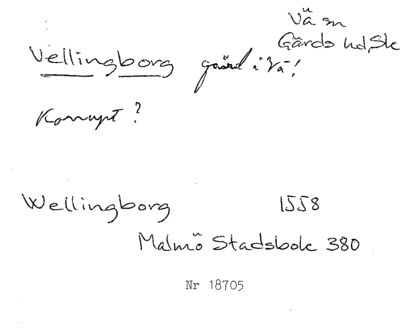 Vä sn
Gärds hd, Sk
Vellingborg gård i Vä!
Korrupt?
Wellingborg 1558
Malmö Stadsbok 380
Nr 18705